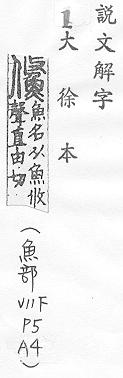 説文解字
1大徐本
鯈魚名从魚攸
聲直由切
(魚部 VII F P5 A4)